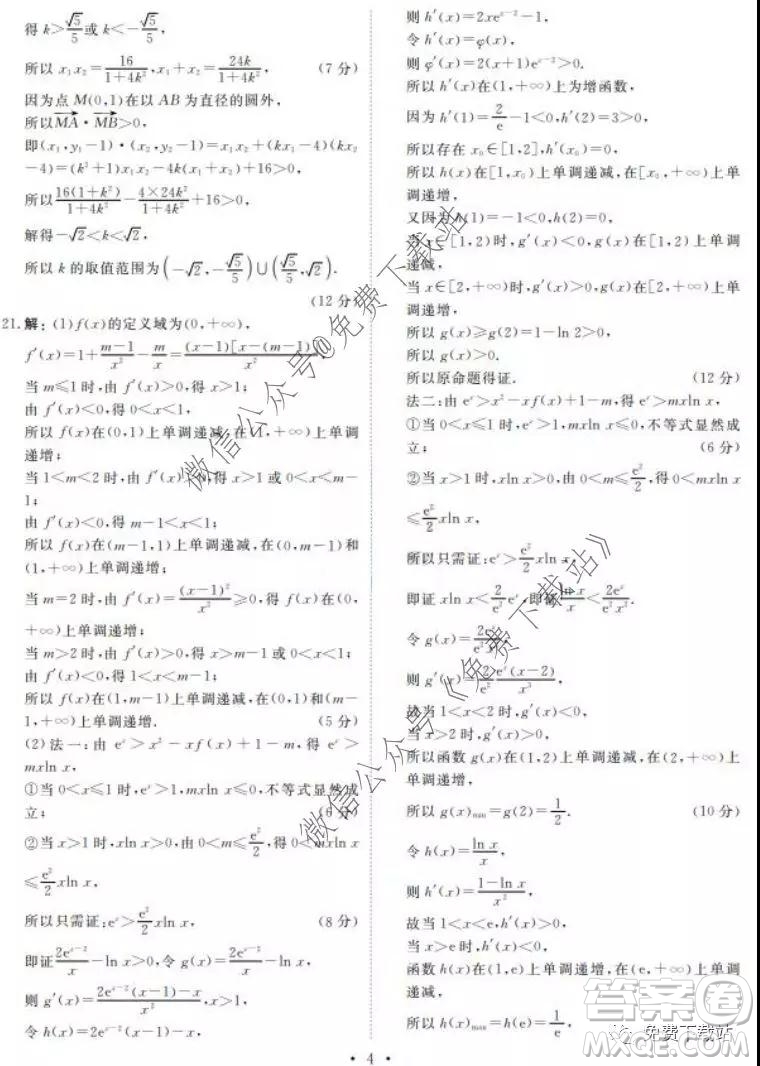 得 k>√5/5 或 k<-√5/5,
所以 x₁x₂=16/(1+4k²),x₁+x₂=24k/(1+4k²), (7 分)
因为点 M(0,1)在以 AB 为直径的圆外,
所以MA·MB>0,
即(x₁,y₁-1)·(x₂,y₂-1)=x₁x₂+(kx₁-4)(kx₂
-4)=(k²+1)x₁x₂-4k(x₁+x₂)+16>0,
所以16(1+k²)/(1+4k²)-4×24k²/(1+4k²)+16>0,
解得-√2<k<√2,
所以 k 的取值范围为(-√2,-√5/5)∪(√5/5,√2).
(12 分)
21.解:(1)f(x)的定义域为(0,+∞),
f′(x)=1+(m-1)/x²-m/x=(x-1)[x-(m-1)]/x²,
当 m≤1 时,由 f′(x)>0,得 x>1;
由 f′(x)<0,得 0<x<1;
所以 f(x)在(0,1)上单调递减,在(1,+∞)上单调
递增;
当 1<m<2 时,由 f′(x)>0,得 x>1 或 0<x<m-
1;
由 f′(x)<0,得 m-1<x<1;
所以 f(x)在(m-1,1)上单调递减,在(0,m-1)和
(1,+∞)上单调递增;
当 m=2 时,由 f′(x)=(x-1)²/x²≥0,得 f(x)在(0,
+∞)上单调递增;
当 m>2 时,由 f′(x)>0,得 x>m-1 或 0<x<1;
由 f′(x)<0,得 1<x<m-1;
所以 f(x)在(1,m-1)上单调递减,在(0,1)和(m-
1,+∞)上单调递增. (5 分)
(2)法一:由 eˣ>x²-xf(x)+1-m,得 eˣ>
mxln x,
①当 0<x≤1 时,eˣ>1,mxln x≤0,不等式显然成
立; (6 分)
②当 x>1 时,xln x>0,由 0<m≤e²/2,得 0<mxln x
≤e²/2 xln x,
所以只需证:eˣ>e²/2 xln x, (8 分)
即证2eˣ⁻²/x-ln x>0,令 g(x)=2eˣ⁻²/x-ln x,
则 g′(x)=(2eˣ⁻²(x-1)-x)/x²,x>1,
令 h(x)=2eˣ⁻²(x-1)-x,
则 h′(x)=2xeˣ⁻²-1,
令 h′(x)=φ(x),
则 φ′(x)=2(x+1)eˣ⁻²>0.
所以 h′(x)在(1,+∞)上为增函数,
因为 h′(1)=2/e-1<0,h′(2)=3>0,
所以存在 x₀∈[1,2],h′(x₀)=0,
所以 h(x)在[1,x₀)上单调递减,在[x₀,+∞)上单
调递增,
又因为 h(1)=-1<0,h(2)=0,
当 x∈[1,2)时,g′(x)<0,g(x)在[1,2)上单调
递减,
当 x∈[2,+∞)时,g′(x)>0,g(x)在[2,+∞)上
单调递增,
所以 g(x)≥g(2)=1-ln 2>0,
所以 g(x)>0.
所以原命题得证. (12 分)
法二:由 eˣ>x²-xf(x)+1-m,得 eˣ>mxln x,
①当 0<x≤1 时,eˣ>1,mxln x≤0,不等式显然成
立; (6 分)
②当 x>1 时,xln x>0,由 0<m≤e²/2,得 0<mxln x
≤e²/2 xln x,
所以只需证:eˣ>e²/2 xln x,
即证 xln x<2/e² eˣ,即证ln x/x<2eˣ/e²x².
令 g(x)=2eˣ/e²x²,
则 g′(x)=2/e² eˣ(x-2)/x³,
故当 1<x<2 时,g′(x)<0;
当 x>2 时,g′(x)>0,
所以函数 g(x)在(1,2)上单调递减,在(2,+∞)上
单调递增,
所以 g(x)min=g(2)=1/2. (10 分)
令 h(x)=ln x/x,
则 h′(x)=(1-ln x)/x²,
故当 1<x<e,h′(x)>0,
当 x>e 时,h′(x)<0,
函数 h(x)在(1,e)上单调递增,在(e,+∞)上单调
递减,
所以 h(x)max=h(e)=1/e,
·4·
微信公众号@免费下载站
微信公众号《免费下载站》
答案卷
免费下载站